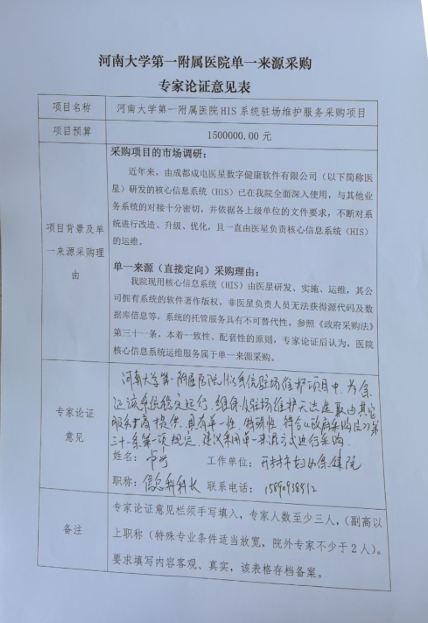 河南大学第一附属医院单一来源采购
专家论证意见表
项目名称
河南大学第一附属医院HIS系统驻场维护服务采购项目
项目预算
1500000.00元
项目背景及单一来源采购理由
采购项目的市场调研：
近年来，由成都成电医星数字健康软件有限公司（以下简称医
星）研发的核心信息系统（HIS）已在我院全面深入使用，与其他业
务系统的对接十分密切，并依据各上级单位的文件要求，不断对系
统进行改造、升级、优化，且一直由医星负责核心信息系统（HIS）
的运维。
单一来源（直接定向）采购理由：
我院现用核心信息系统（HIS）由医星研发、实施、运维，其公
司拥有系统的软件著作版权，非医星负责人员无法获得源代码及数
据库信息等，系统的托管服务具有不可替代性，参照《政府采购法》
第三十一条，本着一致性、配套性的原则，专家论证后认为，医院
核心信息系统运维服务属于单一来源采购。
专家论证
意见
河南大学第一附属医院HIS系统驻场维护项目中，为保
证该系统稳定运行，维保及驻场维护无法选取由其它
服务商提供，具有单一性，特殊性，符合《政府采购法》第
三十一条第一项规定，建议采用单一来源方式进行采购。
姓名：
工作单位：开封市妇幼保健院
职称：信息科科长
联系电话：
备注
专家论证意见栏须手写填入，专家人数至少三人，（副高以
上职称（特殊专业条件适当放宽，院外专家不少于2人）。
要求填写内容客观、真实，该表格存档备案。